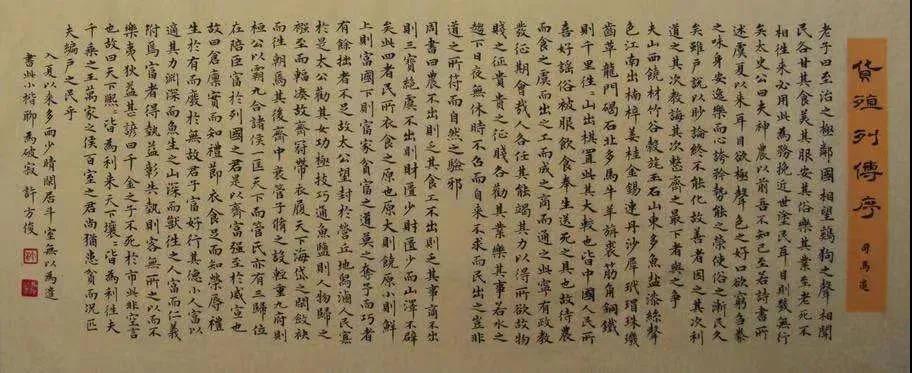 貨殖列傳序
司馬遷
老子曰至治之極鄰國相望鷄狗之聲相聞
民各甘其食美其服安其俗樂其業至老死不
相往來必用此為務輓近世塗民耳目則幾無行
矣太史公曰夫神農以前吾不知已至若詩書所
述虞夏以來耳目欲極聲色之好口欲窮芻豢
之味身安逸樂而心誇矜勢能之榮使俗之漸民久
矣雖戶說以眇論終不能化故善者因之其次利
道之其次教誨其次整齊之最下者與之爭
夫山西饒材竹穀旄玉石山東多魚鹽漆絲聲
色江南出楠梓薑桂金錫連丹沙犀玳瑁珠璣
齒革龍門碣石北多馬牛羊旃裘筋角銅鐵
則千里往往山出棋置此其大較也皆中國人民所
喜好謠俗被服飲食奉生送死之具也故待農
而食之虞而出之工而成之商而通之此寧有政教
發征期會哉人各任其能竭其力以得所欲故物
賤之征貴貴之征賤各勸其業樂其事若水之
趨下日夜無休時不召而自來不求而民出之豈非
道之所符而自然之驗邪
周書曰農不出則乏其食工不出則乏其事商不出
則三寶絕虞不出則財匱少財匱少而山澤不辟
矣此四者民所衣食之原也原大則饒原小則鮮
上則富國下則富家貧富之道莫之奪予而巧者
有餘拙者不足故太公望封於營丘地潟鹵人民寡
於是太公勸其女功極技巧通魚鹽則人物歸之
襁至而輻湊故齊冠帶衣履天下海岱之間斂袂
而往朝焉其後齊中衰管子脩之設輕重九府則
桓公以霸九合諸侯一匡天下而管氏亦有三歸位
在陪臣富於列國之君是以齊富强至於威宣也
故曰倉廩實而知禮節衣食足而知榮辱禮
生於有而廢於無故君子富好行其德小人富以
適其力淵深而魚生之山深而獸往之人富而仁義
附焉富者得埶益彰失埶則客無所之以而不
樂夷狄益甚諺曰千金之子不死於市此非空言
也故曰天下熙熙皆為利來天下壤壤皆為利往夫
千乘之王萬家之侯百室之君尚猶患貧而況匹
夫編戶之民乎
入夏以來多雨少晴閑居斗室無以為遣
書此小楷聊為破寂 許方俊